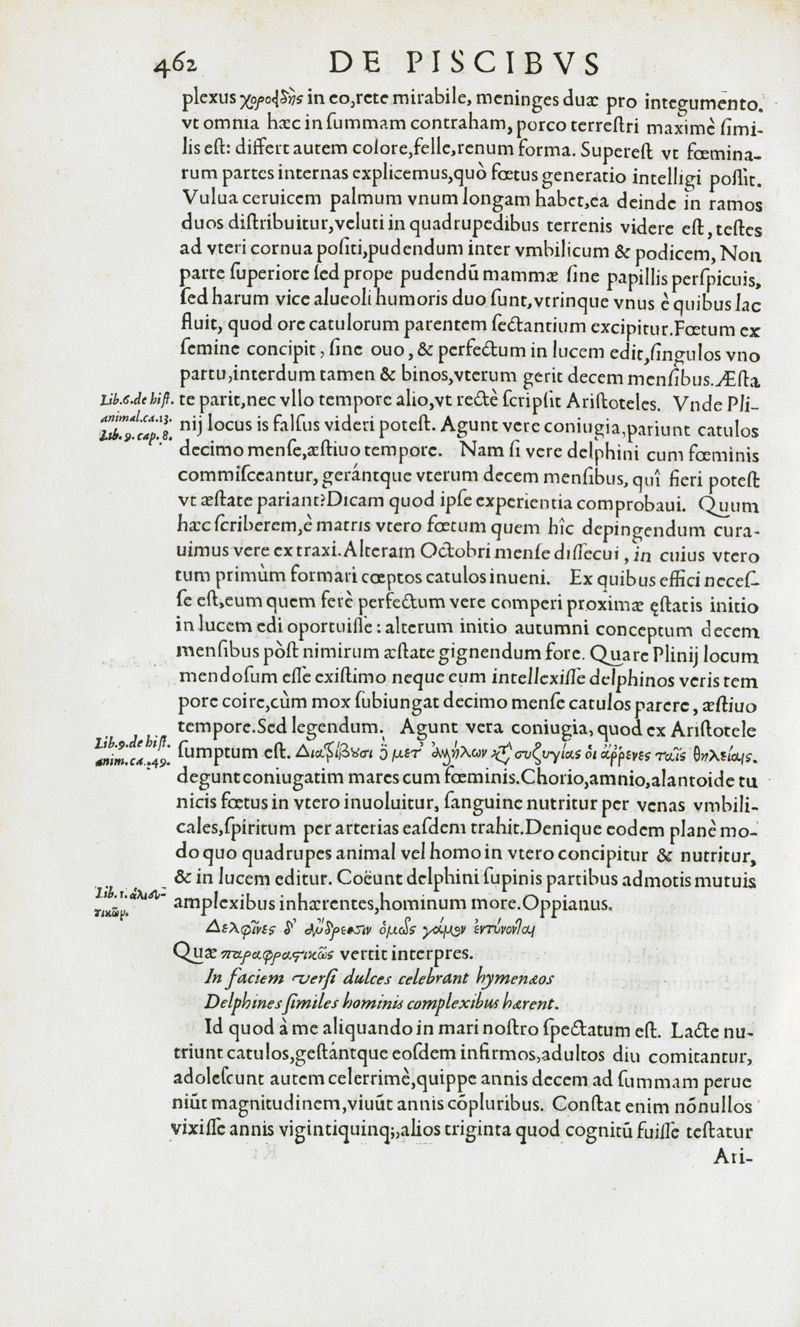 462 DE PISCIBVS
plexus χοροειδὴς in eo,rete mirabile, meninges duæ pro integumento.
vt omnia hæc in ſummam contraham, porco terreſtri maximè ſimi-
lis eſt: differt autem colore,felle,renum forma. Supereſt vt fœmina-
rum partes internas explicemus,quò fœtus generatio intelligi poſſit.
Vulua ceruicem palmum vnum longam habet,ea deinde in ramos
duos diſtribuitur,veluti in quadrupedibus terrenis videre eſt, teſtes
ad vteri cornua poſiti,pudendum inter vmbilicum & podicem, Non
parte ſuperiore ſed prope pudendū mammæ ſine papillis perſpicuis,
ſed harum vice alueoli humoris duo ſunt,vtrinque vnus è quibus lac
fluit, quod ore catulorum parentem ſectantium excipitur.Fœtum ex
ſemine concipit, ſine ouo, & perfectum in lucem edit,ſingulos vno
partu,interdum tamen & binos,vterum gerit decem menſibus.Æſta
Lib.6.de hiſt.
animal.ca.13.
Lib. 9. cap. 8.
te parit,nec vllo tempore alio,vt rectè ſcripſit Ariſtoteles. Vnde Pli-
nij locus is falſus videri poteſt. Agunt vere coniugia,pariunt catulos
decimo menſe,æſtiuo tempore. Nam ſi vere delphini cum fœminis
commiſceantur, gerántque vterum decem menſibus, quî fieri poteſt
vt æſtate pariant?Dicam quod ipſe experientia comprobaui. Quum
hæc ſcriberem,è matris vtero fœtum quem hîc depingendum cura-
uimus vere extraxi.Alteram Octobri menſe diſſecui, in cuius vtero
tum primùm formari cœptos catulos inueni. Ex quibus effici neceſ-
ſe eſt,eum quem ferè perfectum vere comperi proximæ ęſtatis initio
in lucem edi oportuiſſe : alterum initio autumni conceptum decem
menſibus pòſt nimirum æſtate gignendum fore. Quare Plinij locum
mendoſum eſſe exiſtimo neque eum intellexiſſe delphinos veris tem
pore coire,cùm mox ſubiungat decimo menſe catulos parere, æſtiuo
tempore.Sed legendum. Agunt vera coniugia, quod ex Ariſtotele
Lib.9.de hiſt.
anim. ca. 49.
ſumptum eſt. Διατρίβουσι δὲ μετ᾽ ἀλλήλων κατὰ συζυγίας οἱ ἄρρενες ταῖς θηλείαις.
degunt coniugatim mares cum fœminis.Chorio,amnio,alantoide tu
nicis fœtus in vtero inuoluitur, ſanguine nutritur per venas vmbili-
cales,ſpiritum per arterias eaſdem trahit.Denique eodem planè mo-
do quo quadrupes animal vel homo in vtero concipitur & nutritur,
& in lucem editur. Coëunt delphini ſupinis partibus admotis mutuis
Lib. 1. ἁλιευ-
τικῶν.
amplexibus inhærentes,hominum more.Oppianus.
Δελφῖνες δ᾽ ἄνδρεσσιν ὁμῶς γάμον ἐντύνονται
Quæ παραφραστικῶς vertit interpres.
In faciem verſi dulces celebrant hymenæos
Delphines ſimiles hominis complexibus hærent.
Id quod à me aliquando in mari noſtro ſpectatum eſt. Lacte nu-
triunt catulos,geſtántque eoſdem infirmos,adultos diu comitantur,
adoleſcunt autem celerrimè,quippe annis decem ad ſummam perue
niūt magnitudinem,viuūt annis cōpluribus. Conſtat enim nōnullos
vixiſſe annis vigintiquinq;,alios triginta quod cognitū fuiſſe teſtatur
Ari-